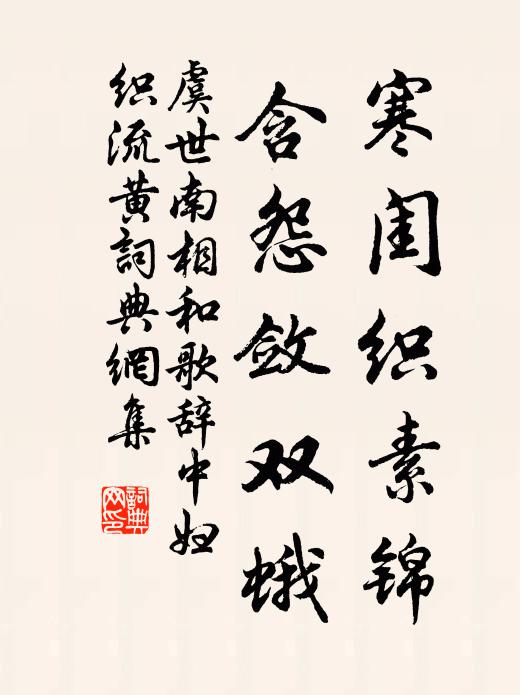 寒闺织素锦
含怨敛双蛾
虞世南相和歌辞中妇
织流黄詞典網集
詞典
网印